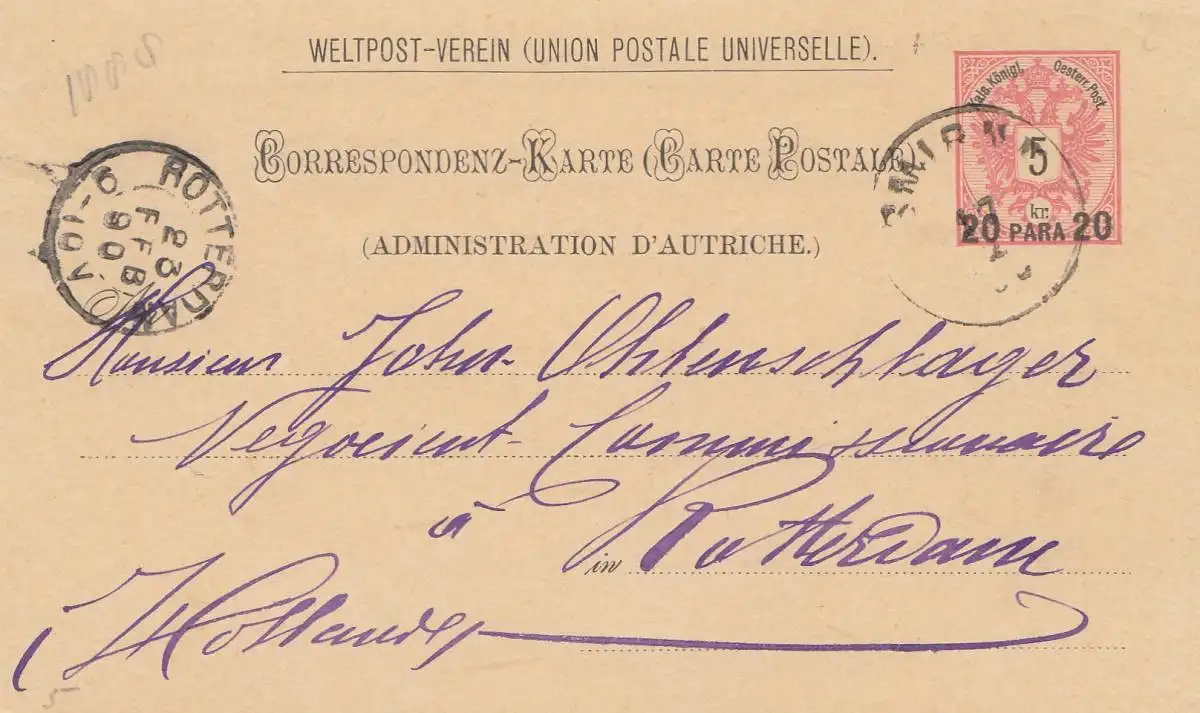 WELTPOST-VEREIN (UNION POSTALE UNIVERSELLE).
CORRESPONDENZ-KARTE (CARTE POSTALE).
(ADMINISTRATION D'AUTRICHE.)
Kais. Königl. Oesterr. Post.
5
kr.
20 PARA 20
SMIRNA
ROTTERDAM
23
FEB
90
Monsieur John Ohlenschlager
Negociant Commissionnaire
à
in Rotterdam
Hollande
5